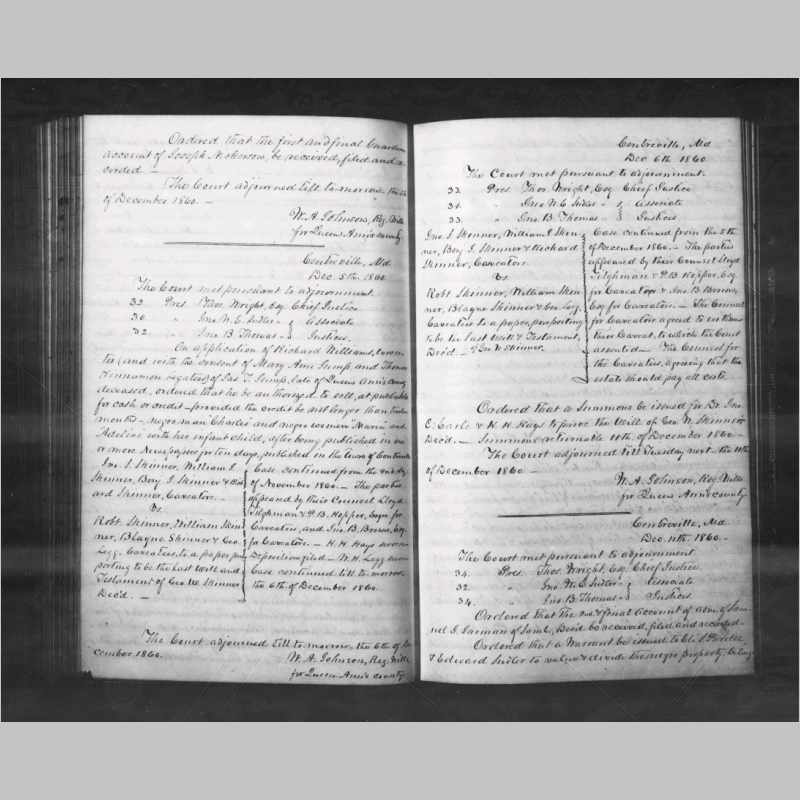 Ordered that the first and final Guardian
account of Joseph N. Johnson, be received, filed and re
corded. —
The Court adjourned till to-morrow the
of December 1860. —
W. A. Johnson, Reg. Wills
for Queen Ann's county
Centreville, Md.
Dec. 5th. 1860
The Court met pursuant to adjournment.
33 Pres. Thos. Wright, Esq. Chief Justice
30 " Jno. W. E. Sudler } Associate
32 " Jno. B. Thomas } Justices.
On application of Richard Williams, Execu
tor, and with the consent of Mary Ann Gump, and Thomas
Cinnamon Legatees of Jas. T. Gump, late of Queen Ann's County
deceased, ordered that he be authorized to sell, at public sale
for cash or credit — provided the credit be not longer than twelve
months — negro man Charles and negro women Maria and
Adeline with her infant child, after being published in one
or more Newspapers for ten days, published in the town of Centreville
Jno. S. Skinner, William S.
Skinner, Benj. S. Skinner & Rich
ard Skinner, Caveators.
vs.
Robt. Skinner, William Skin
ner, Blayne Skinner & Geo.
Legg. Caveatees, to a paper pur
porting to be the last Will and
Testament of Geo. W. Skinner
Dec'd. —
Case continued from the
of November 1860. — The parties
appeared by their Counsel Lloyd
Tilghman & P. B. Hopper, Esqrs. for
Caveators, and Jno. B. Brown, Esq.
for Caveatees. — H. H. Hays sworn
Deposition filed — W. H. Legg sworn
Case continued till to-morrow
the 6th. of December 1860.
The Court adjourned till to-morrow, the 6th of De
cember 1860.
W. A. Johnson, Reg. Wills
for Queen Ann's county
Centreville, Md
Dec 6th. 1860
The Court met pursuant to adjournment.
33 Pres. Thos. Wright, Esq. Chief Justice
31 " Jno. W. E. Sudler } Associate
33 " Jno. B. Thomas } Justices
Jno. S. Skinner, William S. Skin
ner, Benj. S. Skinner & Richard
Skinner, Caveators.
vs
Robt. Skinner, William Skin
ner, Blayne Skinner & Geo. Legg.
Caveatees to a paper, purporting
to be the last Will & Testament,
Dec'd — of Geo. W. Skinner.
Case continued from the 5th.
of December 1860. — The parties
appeared by their Counsel Lloyd
Tilghman & P. B. Hopper, Esq.
for Caveators & Jno. B. Brown,
Esq. for Caveatees. — The Counsel
for Caveators agreed to withdraw
their Caveat, to which the Court
assented — The Counsel for
the Caveatees, agreeing that the
estate should pay all costs.
Ordered that a Summons be issued for Dr. Jno.
C. Earle & H. H. Hays to prove the Will of Geo. W. Skinner
Dec'd. — Summons returnable 11th. of December 1860
The Court adjourned till Tuesday next the 11th
of December 1860 —
W. A. Johnson, Reg. Wills
for Queen Ann's county
Centreville, Md
Dec. 11th. 1860. —
The Court met pursuant to adjournment
34. Pres. Thos. Wright, Esq. Chief Justice
32. " Jno. W. E. Sudler } Associate
34. " Jno. B. Thomas } Justices
Ordered that the 2nd. & final account of adm. of Sam
uel G. Jarman of Saml. Dec'd. be received, filed and recorded —
Ordered that a Warrant be issued to
& Edward Sudler to value & divide the negro property, belong